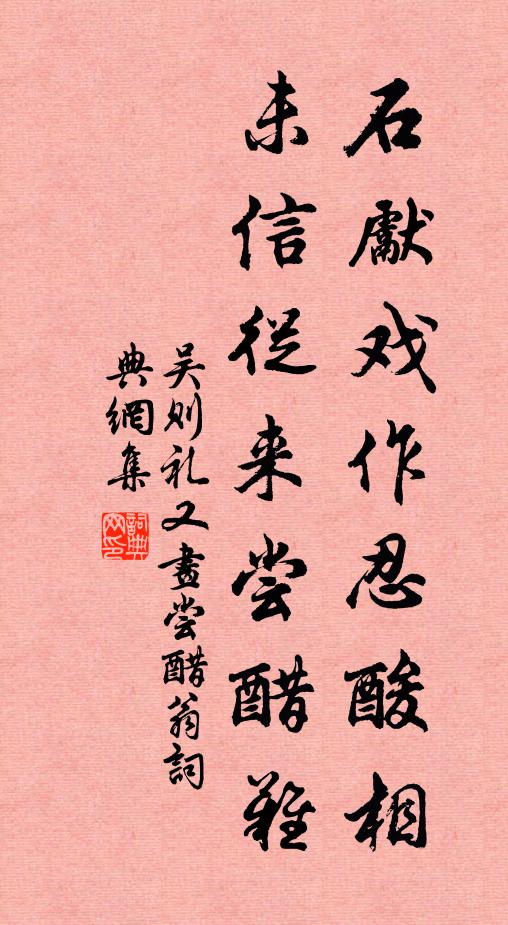 石獻戏作忍酸相
未信從来尝醋難
吴则礼又畫尝醋翁詞
典網集
詞典
网印